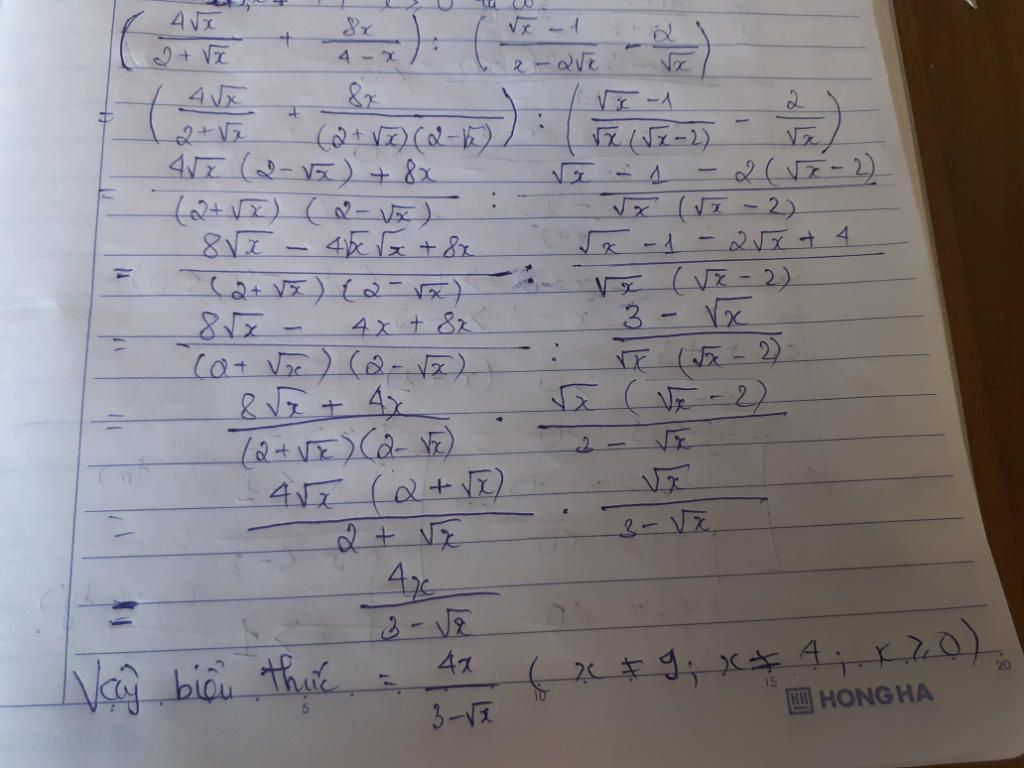 (4√x/(2+√x) + 8x/(4-x)) : ((√x-1)/(x-2√x) - 2/√x)
= (4√x/(2+√x) + 8x/((2+√x)(2-√x))) : ((√x-1)/(√x(√x-2)) - 2/√x)
= (4√x(2-√x)+8x)/((2+√x)(2-√x)) : (√x-1-2(√x-2))/(√x(√x-2))
= (8√x-4√x√x+8x)/((2+√x)(2-√x)) : (√x-1-2√x+4)/(√x(√x-2))
= (8√x-4x+8x)/((2+√x)(2-√x)) : (3-√x)/(√x(√x-2))
= (8√x+4x)/((2+√x)(2-√x)) . (√x(√x-2))/(3-√x)
= (4√x(2+√x))/(2+√x) . √x/(3-√x)
= 4x/(3-√x)
Vậy biểu thức = 4x/(3-√x) (x ≠ 9; x ≠ 4; x ≥ 0)
5 10 15 20
HH HONG HA